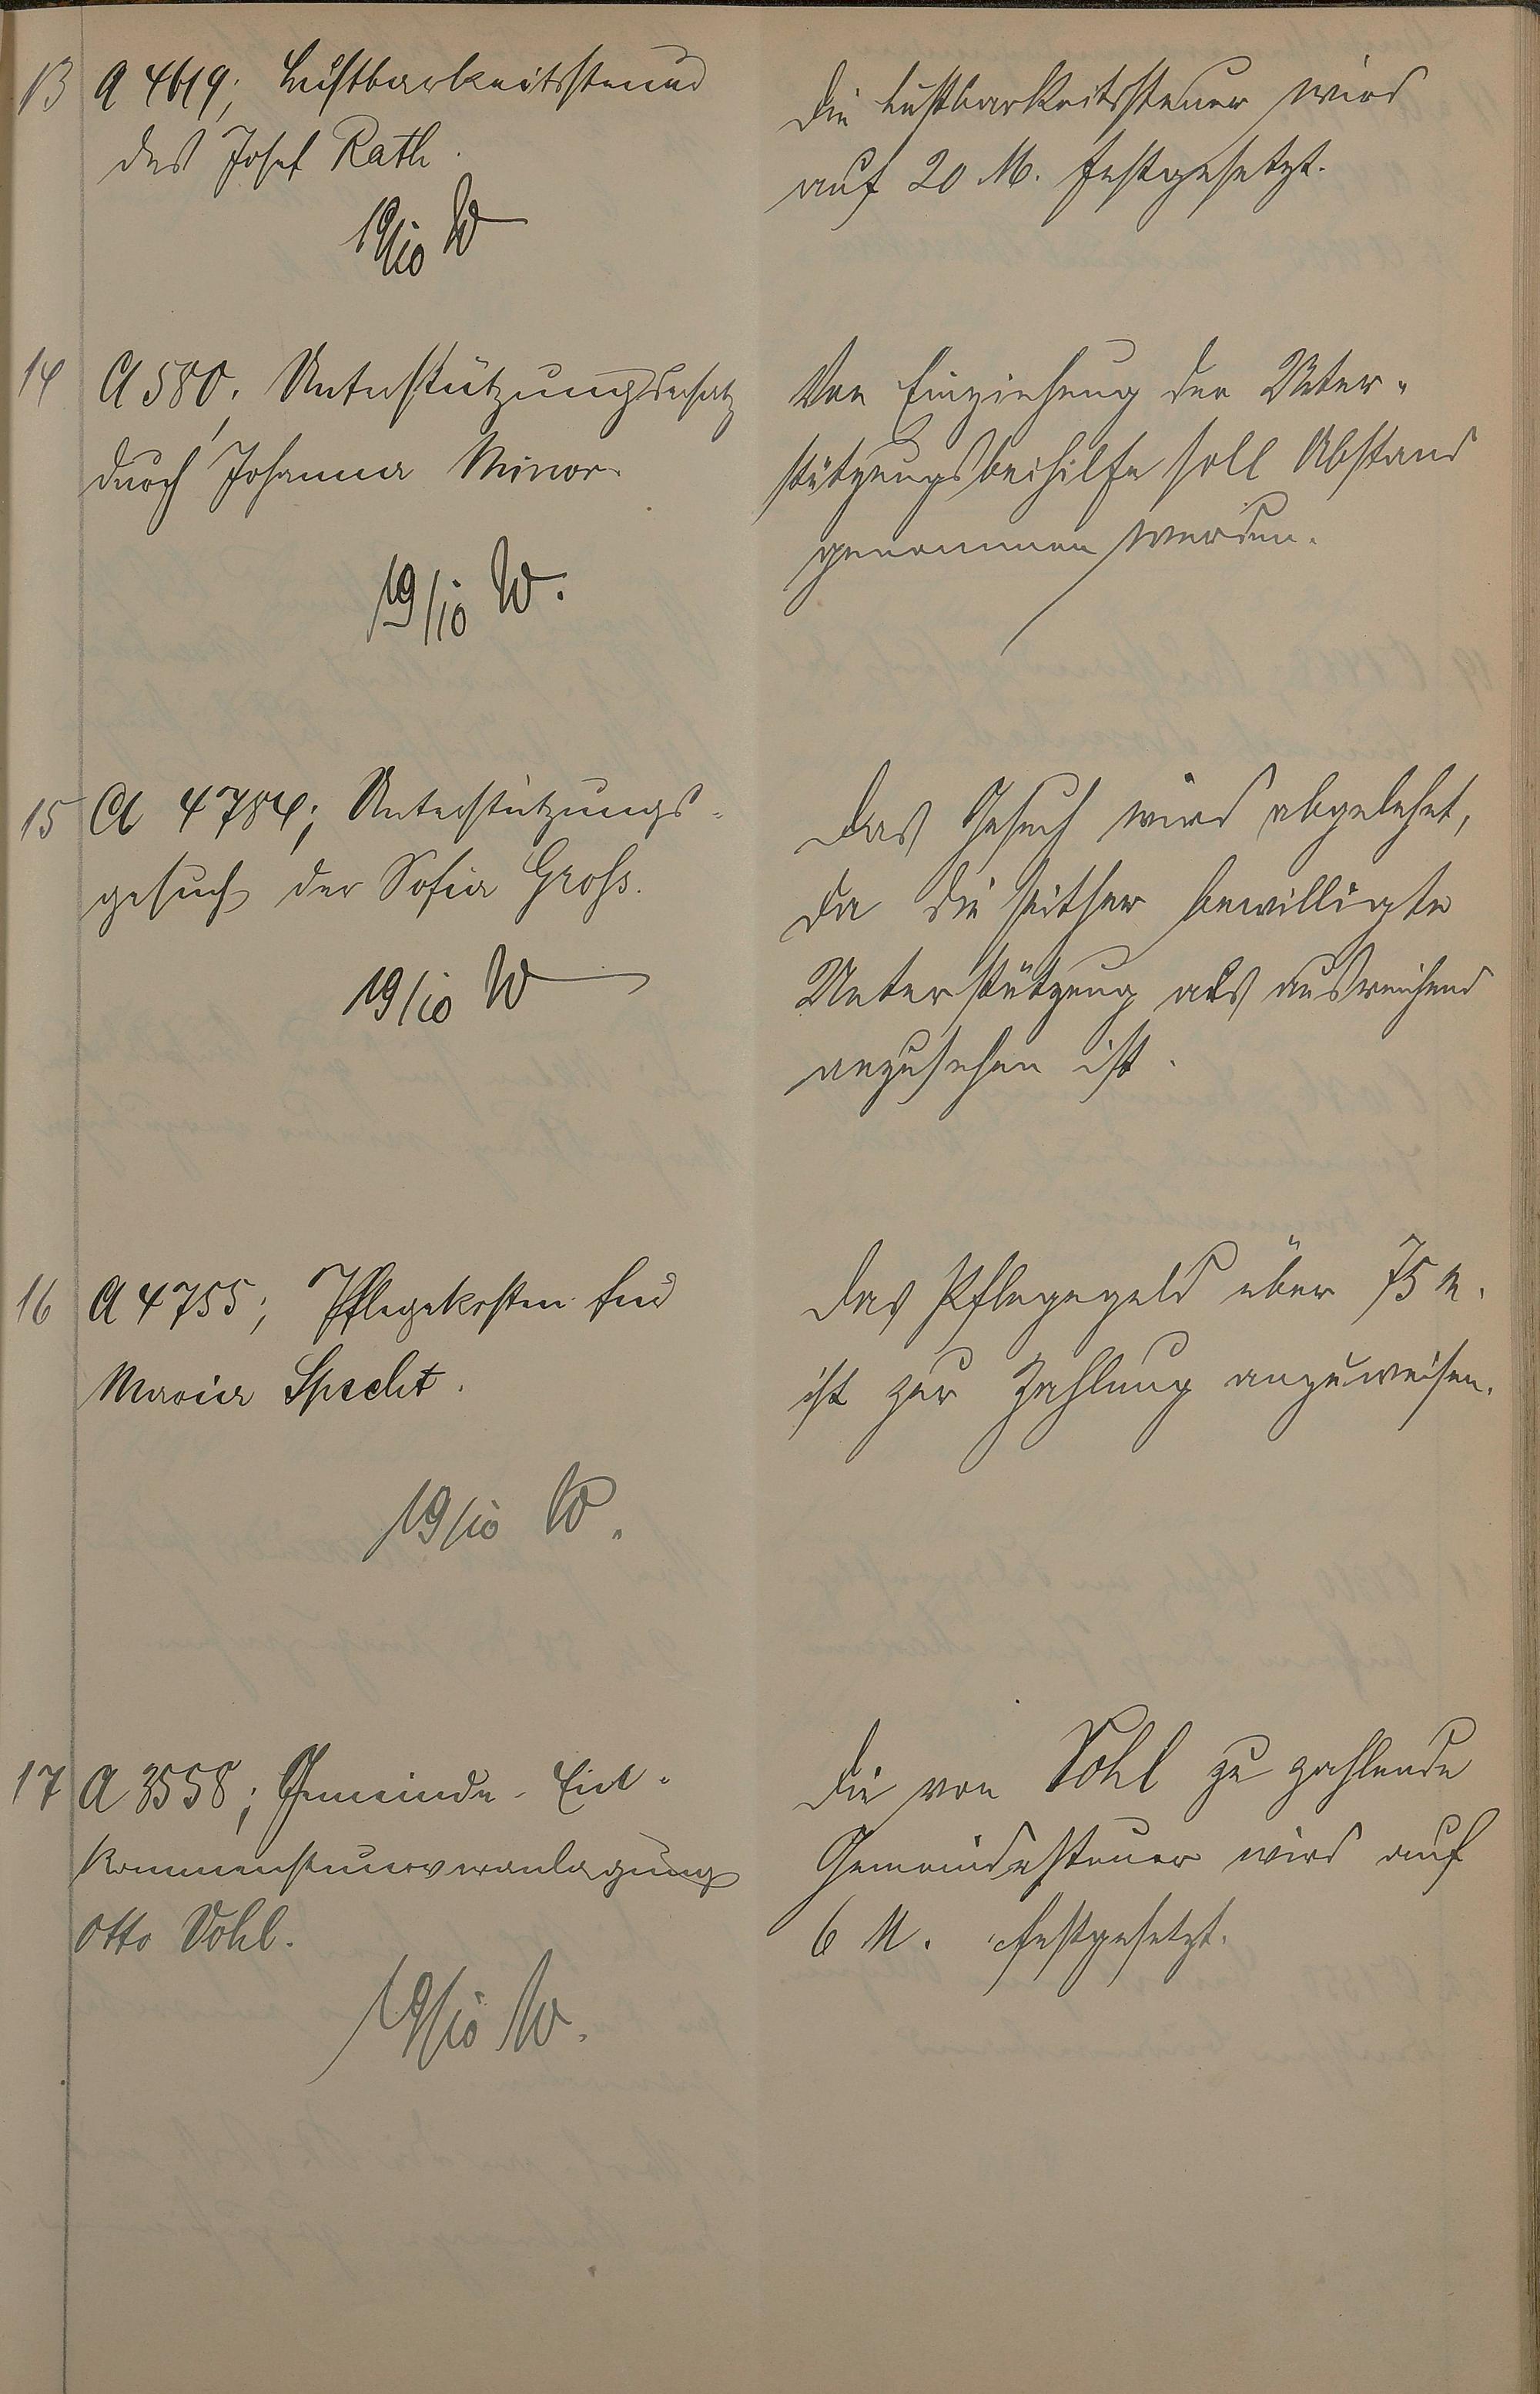 13 A 4619; Lustbarkeitssteuer
des Josef Rath.
19/10 W
Die Lustbarkeitssteuer wird
auf 20 M. festgesetzt.
14 A 580, Unterstützungsersatz
durch Johanna Minor.
19/10 W.
Von Einziehung der Unter-
stützungsbeihilfe soll Abstand
genommen werden.
15 A 4784; Unterstützungs-
gesuch der Sofia Groß.
19/10 W
Das Gesuch wird abgelehnt,
da die seither bewilligte
Unterstützung als ausreichend
anzusehen ist.
16 A 4755; Pflegekosten für
Maria Specht.
19/10 W.
Das Pflegegeld über 75 M.
ist zur Zahlung anzuweisen.
17 A 3558; Gemeinde-Ein-
kommensteuerveranlagung
Otto Vohl.
19/10 W.
Die von Vohl zu zahlende
Gemeindesteuer wird auf
6 M. festgesetzt.